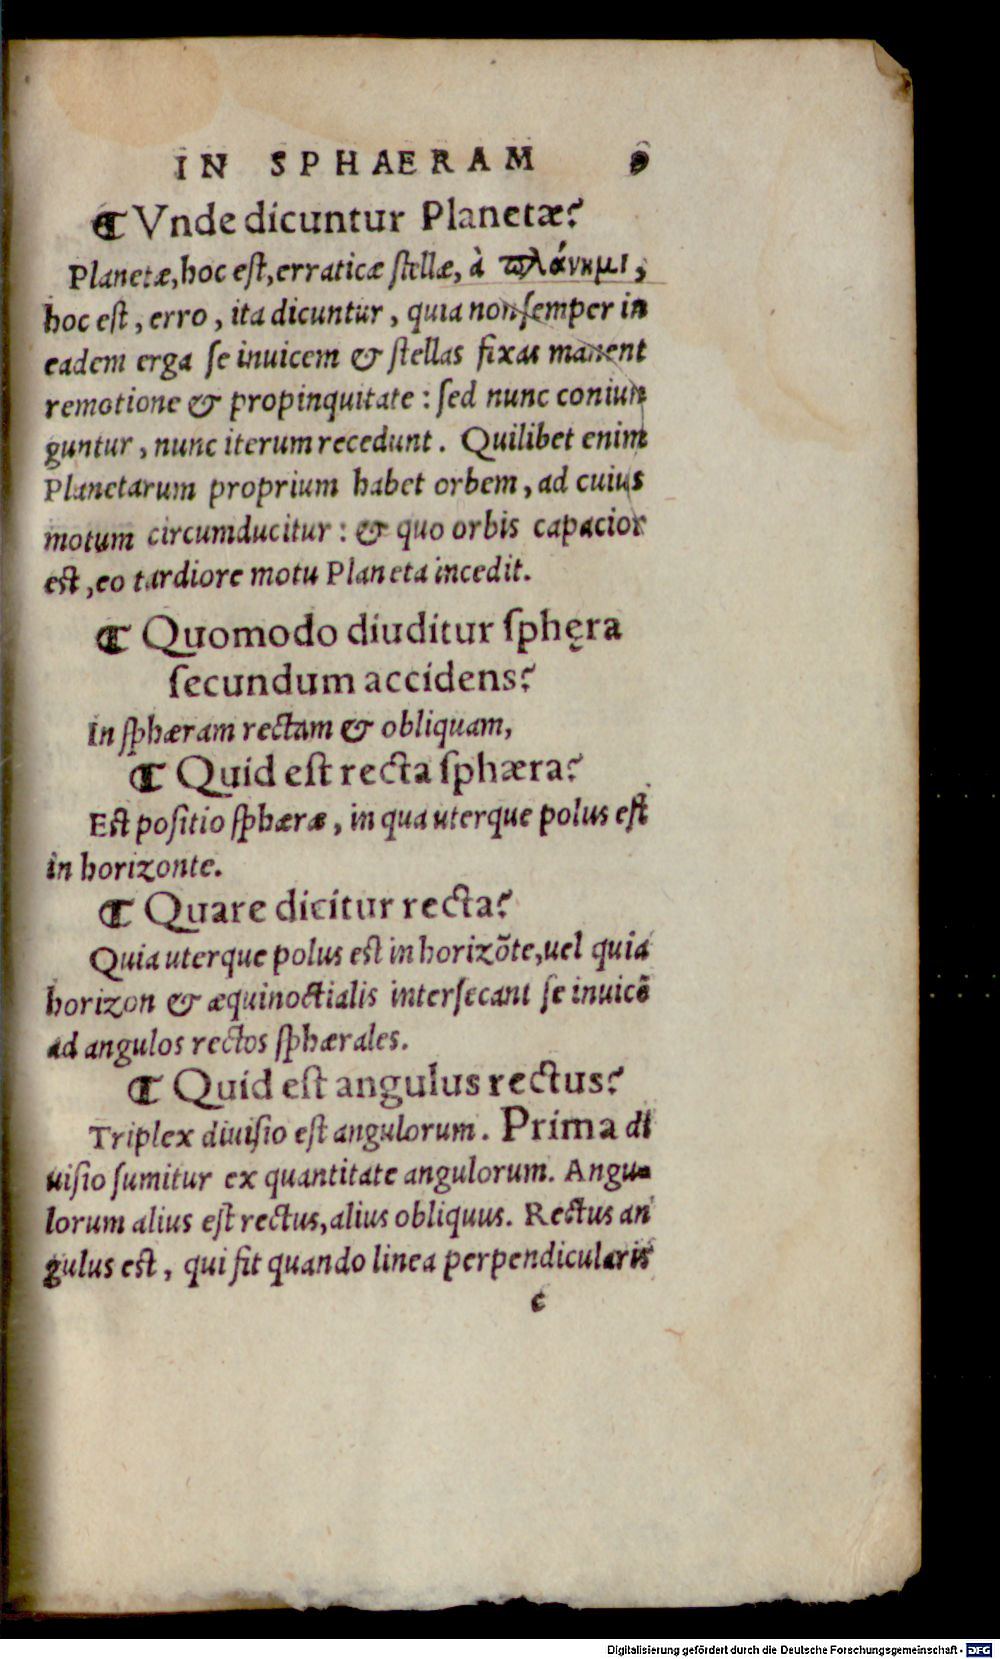 IN SPHAERAM 9
¶ Vnde dicuntur Planetæ?
Planetæ, hoc eſt, erraticæ ſtellæ, à πλάνημι,
hoc eſt, erro, ita dicuntur, quia non ſemper in
eadem erga ſe inuicem & ſtellas fixas manent
remotione & propinquitate: ſed nunc coniun
guntur, nunc iterum recedunt. Quilibet enim
Planetarum proprium habet orbem, ad cuius
motum circumducitur: & quo orbis capacior
eſt, eo tardiore motu Planeta incedit.
¶ Quomodo diuditur ſphęra
ſecundum accidens?
In ſphæram rectam & obliquam,
¶ Quid eſt recta ſphæra?
Eſt poſitio ſphæræ, in qua uterque polus eſt
in horizonte.
¶ Quare dicitur recta?
Quia uterque polus eſt in horizõte, uel quia
horizon & æquinoctialis interſecant ſe inuicẽ
ad angulos rectos ſphærales.
¶ Quid eſt angulus rectus?
Triplex diuiſio eſt angulorum. Prima di
uiſio ſumitur ex quantitate angulorum. Angu-
lorum alius eſt rectus, alius obliquus. Rectus an
gulus eſt, qui fit quando linea perpendicularis
c
Digitalisierung gefördert durch die Deutsche Forschungsgemeinschaft - DFG